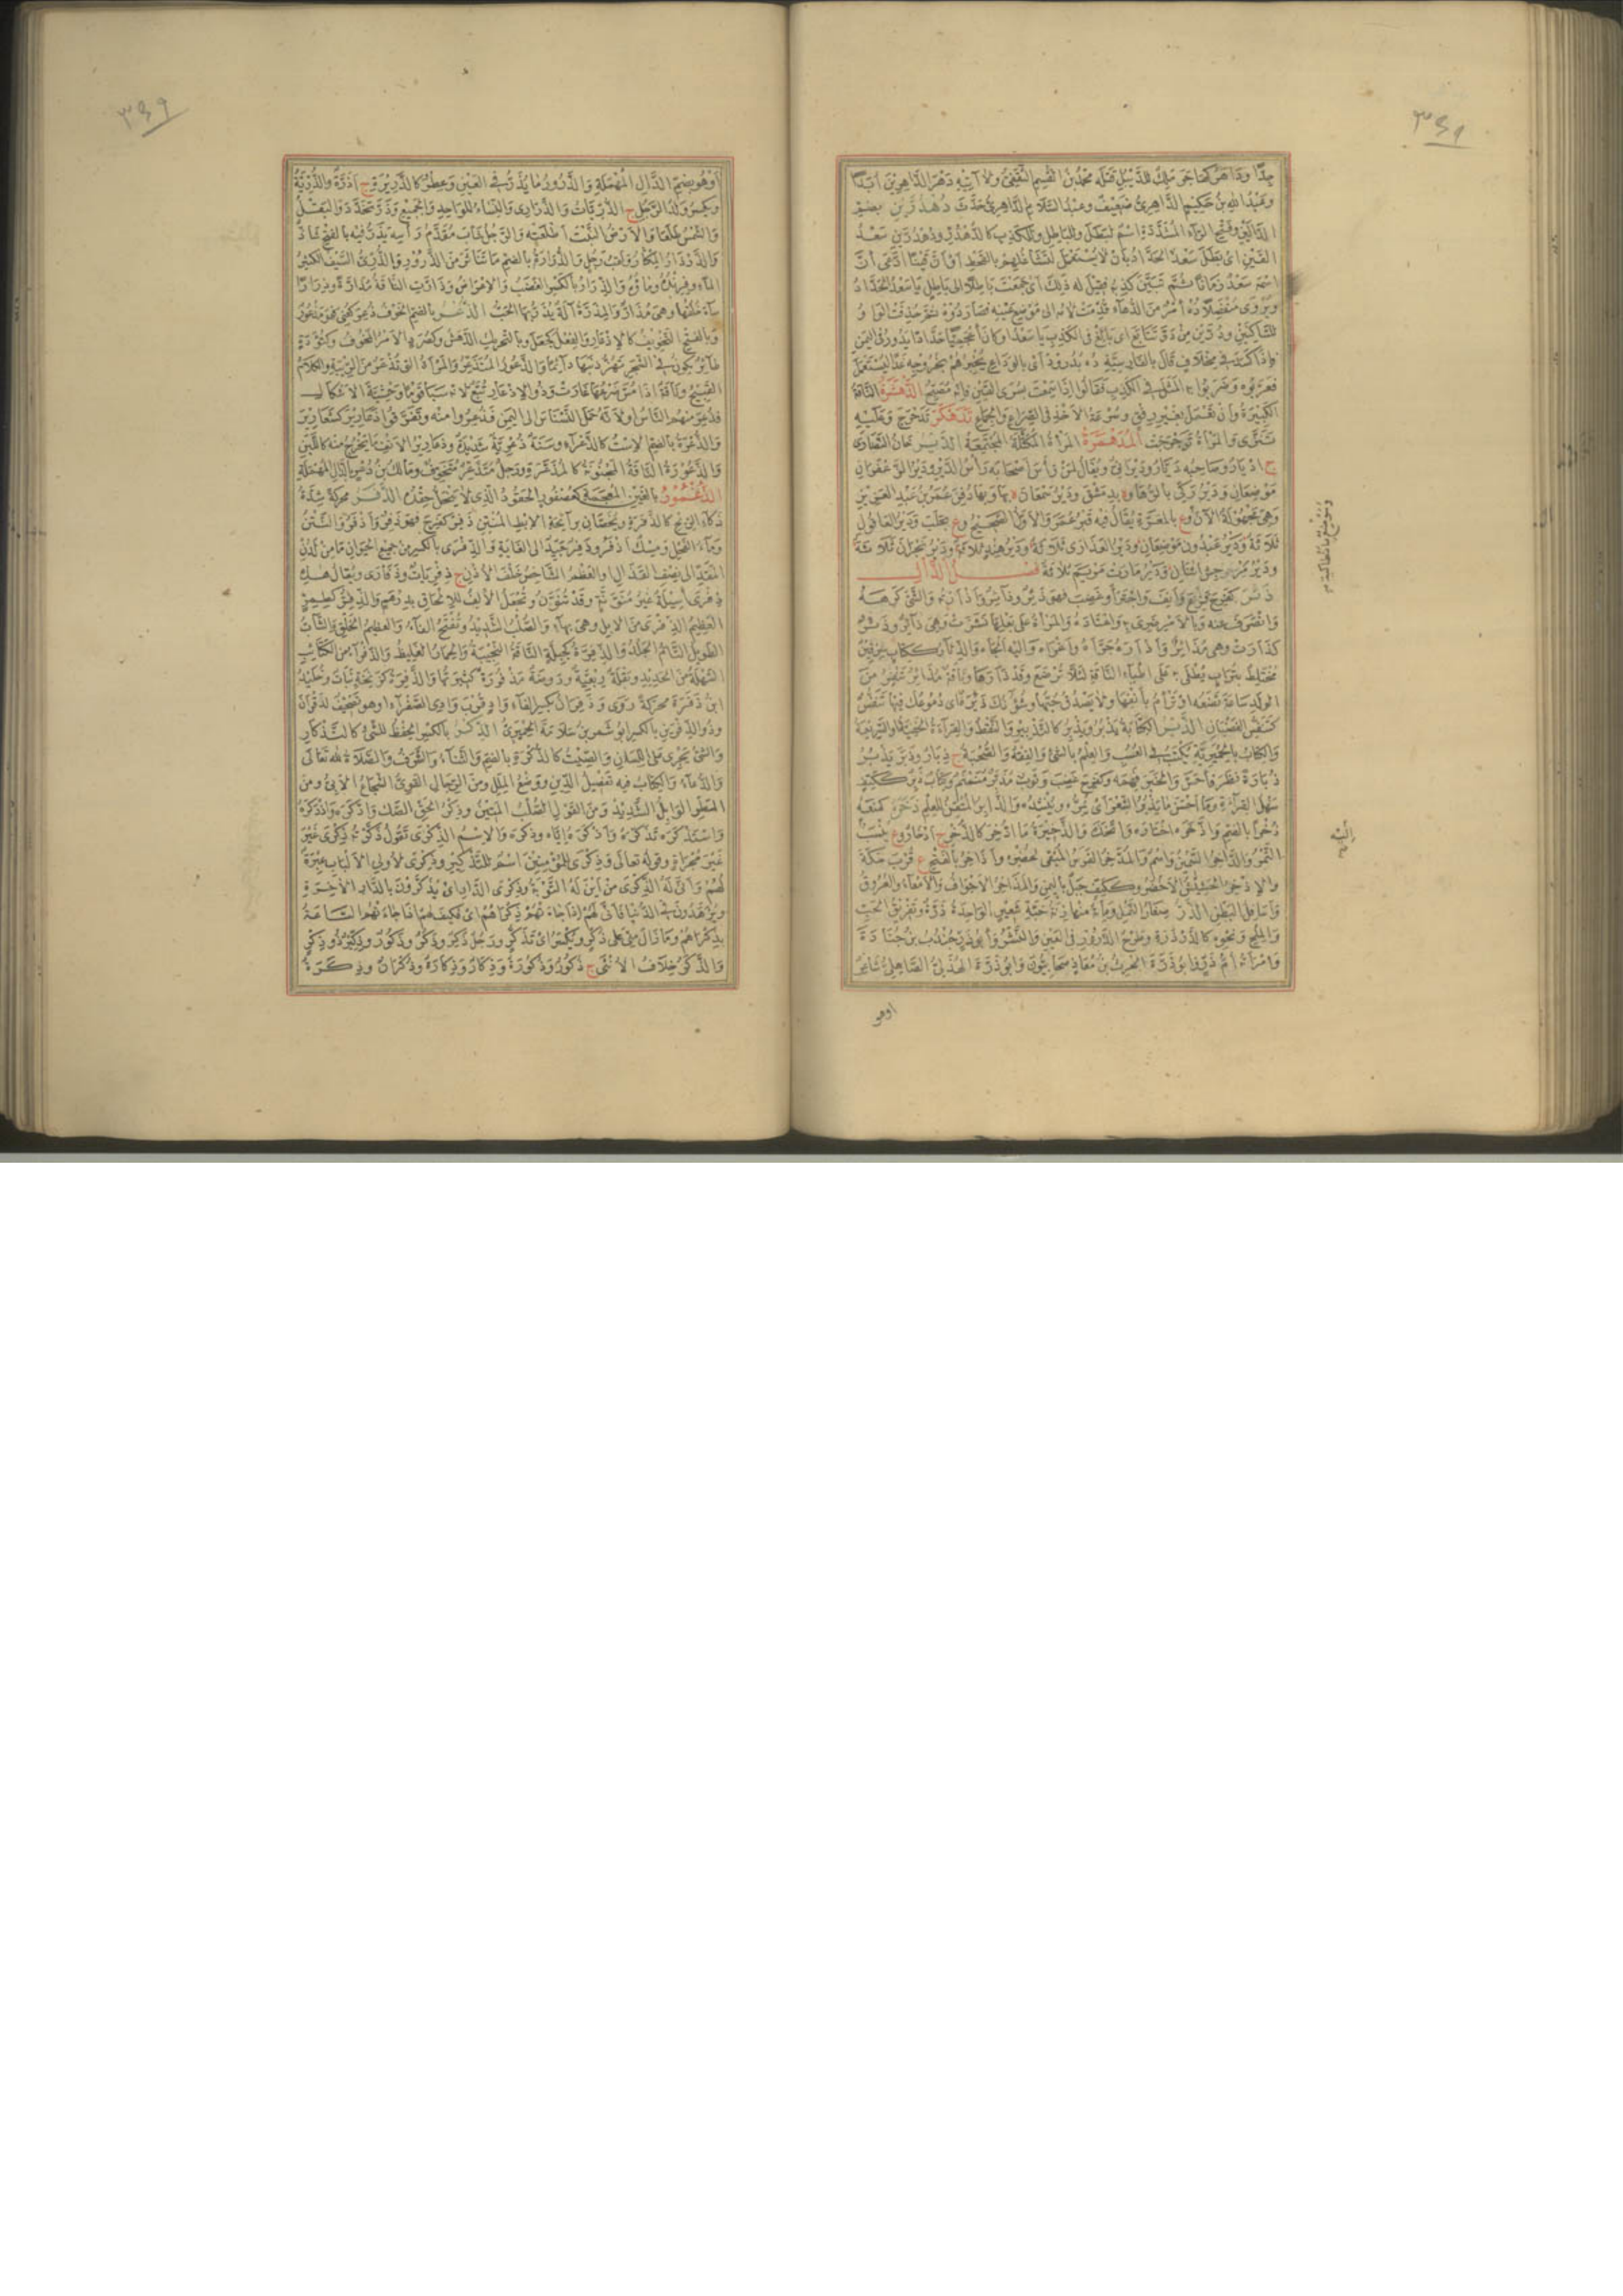 ٣٤٩
جدًّا وداهر كصاحب ملك للديبل قتله محمد بن القسم الثقفي ولا آتيه دهر الداهرين أبدًا
وعبد الله بن حكيم الداهري ضعيف وعبد السلام الداهري حدث دهدرين بضم
الدالين وفتح الراء المشددة اسم لبطل وللباطل وللكذب كالدهدر ودهدرين سعد
القين أي بطل سعد الحداد بأن لا يستعمل لتشاغلهم بالقحط أو أن قينا ادعى أن
اسمه سعد زمانا ثم تبين كذبه فقيل له ذلك أي جمعت باطلا إلى باطل يا سعد الحداد
ويروى منفصلا ده أمر من الدهاء قدمت لامه إلى موضع عينه فصار دوه ثم حذفت الواو
للساكنين ودرين من در تتابع أي بالغ في الكذب يا سعد أو كان أعجميا حدادا يدور في اليمن
فإذا كسد في مخلاف قال بالفارسية ده بدرود أي بالوداع يخبرهم بخروجه غدا ليستعمل
فعربوه وضربوا به المثل في الكذب فقالوا إذا سمعت بسرى القين فإنه مصبح الدهشرة الناقة
الكبيرة وأن تعمل بغير رفق وسرعة الأخذ في الصراع والجماع تدهكر تدحرج وعليه
تنزى والمرأة ترجرجت المدهمرة المرأة المكتلة المجتمعة الدير خان النصارى
ج أديار وصاحبه ديار وديراني ويقال لمن رأس أصحابه رأس الدير ودير الزعفران
موضعان ودير زكي بالرها وة بدمشق ودير سمعان ة بها وبها دفن عمر بن عبد العزيز
وهي مجهولة الآن وع بالمعرة يقال فيه قبر عمر والأول الصحيح وع بحلب ودير العاقول
ثلاثة ودير عبدون موضعان ودير العذارى ثلاثة ودير هند ثلاثة ودير نجران ثلاثة
ودير مارت مريم ثلاثة فصل الذال
ذئر كفرح فزع وأنف واجترأ وغضب فهو ذئر وذائر وأذأرته والشيء كرهه
وانصرف عنه وبالأمر ضري به واعتاده والمرأة على بعلها نشزت وهي ذائر وذئر
كذاءرت وهي مذائر وأذأره جرأه وأغراه وإليه ألجأه والذئار ككتاب سرقين
مختلط بتراب يطلى به على أطباء الناقة لئلا ترضع وقد ذأرها وناقة مذائر تنفر من
الولد ساعة تضعه أو ترأم بأنفها ولا يصدق حبها وشؤنك ذئرة أي دموعك فيها تنفس
كتنفس الغضبان الذبر الكتابة يذبر ويذبر كالتذبير والنقط والقراءة الخفية أو السريعة
والكتاب بالحميرية يكتب في العسب والعلم بالشيء والفقه والصحيفة ج ذبار وذبر يذبر
ذبارة نظر فأحسن والخبر فهمه وكفرح غضب وثوب مذبر منمنم وكتاب ذبر ككتف
سهل القراءة وما أحسن ما يذبر الشعر أي يمره وينشده والذابر المتقن للعلم ذخره كمنعه
ذخرا بالضم وادخره اختاره واتخذه والذخيرة ما ادخر كالذخر ج أذخار وع ينسب
التمر والذاخر السمين واسم والمدخر الفرس المبقي لحضره وأذاخر بالفتح ع قرب مكة
والإذخر الحشيش الأخضر وككتف جبل باليمن والمذاخر الأجواف والأمعاء والعروق
وأسافل البطن الذر صغار النمل ومائة منها زنة حبة شعير الواحدة ذرة وتفريق الحب
والملح ونحوه كالذرذرة وطرح الذرور في العين والنشر وأبو ذر جندب بن جنادة
وامرأته أم ذر وأبو ذرة الحرث بن معاذ صحابيون وأبو ذرة الهذلي الصاهلي شاعر
أو هو
وموضع بانطاكية م
٣٤٩
أو هو بضم الدال المهملة والذرور ما يذر في العين وعطر كالذريرة ج أذرة والذرية
ويكسر ولد الرجل ج الذريات والذراري والنساء للواحد والجميع وذر تخدد والبقل
والشمس طلعا والأرض النبت أطلعته والرجل شاب مقدم رأسه يذر فيه بالفتح شاذ
والذرذار المكثار ولقب رجل والذرارة بالضم ما تناثر من الذرور والذري السيف الكثير
الماء وفرنده وماؤه والذرار بالكسر الغضب والإعراض وذارت الناقة مذارة وذرارا
ساء خلقها وهي مذار والمذرة آلة يذر بها الحب الذعر بالضم الخوف ذعر كعني فهو مذعور
وبالفتح التخويف كالإذعار والفعل كجعل وبالتحريك الدهش وكصرد الأمر المخوف وكتؤدة
طائر يكون في الشجر تهز ذنبها دائما والذعور المتذعر والمرأة التي تذعر من الريبة والكلام
القبيح وناقة إذا مس ضرعها غارت وذو الأذعار تبع لأنه سبا قوما وحشة الأشكال
فذعر منهم الناس أو لأنه حمل النسناس إلى اليمن فذعروا منه وتفرقوا ذعارير كشعارير
والذعرة بالضم الاست كالذعراء وسنة ذعرية شديدة وذعارير الأنف ما يخرج منه كاللبن
والمذعورة الناقة المجنونة كالمذعرة ورجل متذعر متخوف ومالك بن دعر بالدال المهملة
الذغمور بالغين المعجمة كعصفور الحقود الذي لا ينحل حقده الذفر محركة شدة
ذكاء الريح كالذفرة ويخصان برائحة الإبط المنتن ذفر كفرح فهو ذفر وأذفر والنتن
وماء الفحل ومسك أذفر وذفر جيد إلى الغاية والذفرى بالكسر من جميع الحيوان ما من لدن
المقذ إلى نصف القذال أو العظم الشاخص خلف الأذن ج ذفريات وذفارى ويقال هذه
ذفرى أسيلة غير منونة وقد تنون وتجعل الألف للإلحاق بدرهم والذفر كطمر
العظيم الذفرى من الإبل وهي بهاء والصلب الشديد وتفتح الفاء والعظيم الخلق والشاب
الطويل التام الجلد والذفرة كجبلة الناقة النجيبة والحمار الغليظ والذفراء من الكتائب
السهكة من الحديد وبقلة ربعية وروضة مذفورة كثيرتها والذفرة كزنخة نبات وخليد
ابن ذفرة محركة روى وذفران بكسر الفاء واد قرب وادي الصفراء أو هو تصحيف لدقران
وذو الذفرين بالكسر أبو شمر بن سلامة الحميري الذكر بالكسر الحفظ للشيء كالتذكار
والشيء يجري على اللسان والصيت كالذكرة بالضم والثناء والشرف والصلاة لله تعالى
والدعاء والكتاب فيه تفصيل الدين ووضع الملل ومن الرجال القوي الشجاع الأبي ومن
المطر الوابل الشديد ومن القول الصلب المتين وذكر الحق الصك وادكره واذدكره
واستذكره تذكره وأذكره إياه وذكره والاسم الذكرى تقول ذكرته ذكرى غير
غير مجراة وقوله تعالى وذكرى للمؤمنين اسم للتذكير وذكرى لأولي الألباب عبرة
لهم وأنى له الذكرى من أين له التوبة وذكرى الدار أي يذكرون بالدار الآخرة
ويزهدون في الدنيا فأنى لهم إذا جاءتهم ذكراهم أي فكيف لهم إذا جاءتهم الساعة
بذكراهم وما زال مني على ذكر ويكسر أي تذكر ورجل ذكر وذكر وذكور وذكير ذو ذكر
والذكر خلاف الأنثى ج ذكور وذكورة وذكار وذكارة وذكران وذكرة